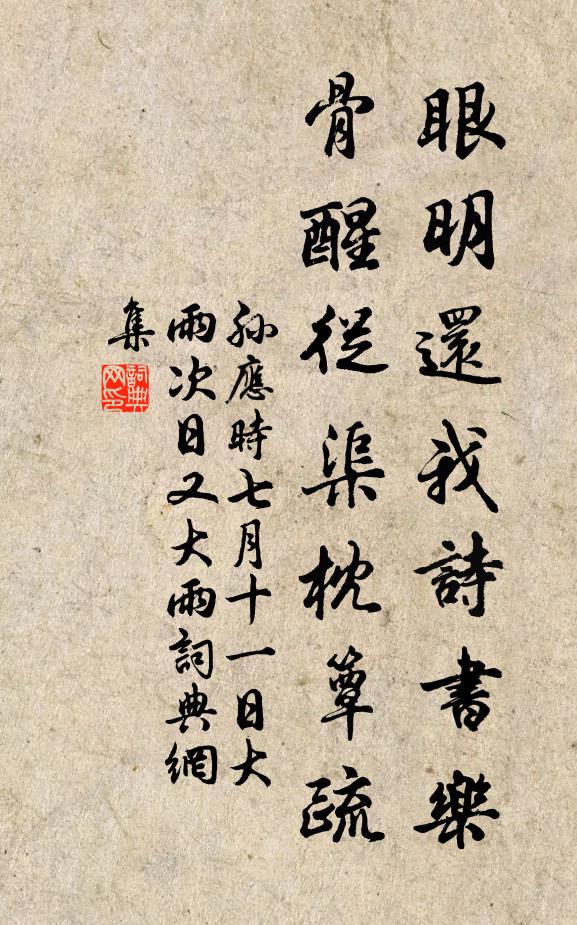 眼明還我詩書樂
骨醒從渠枕簟疏
孫應時七月十一日大
雨次日又大雨詞典網
集
詞典
网印